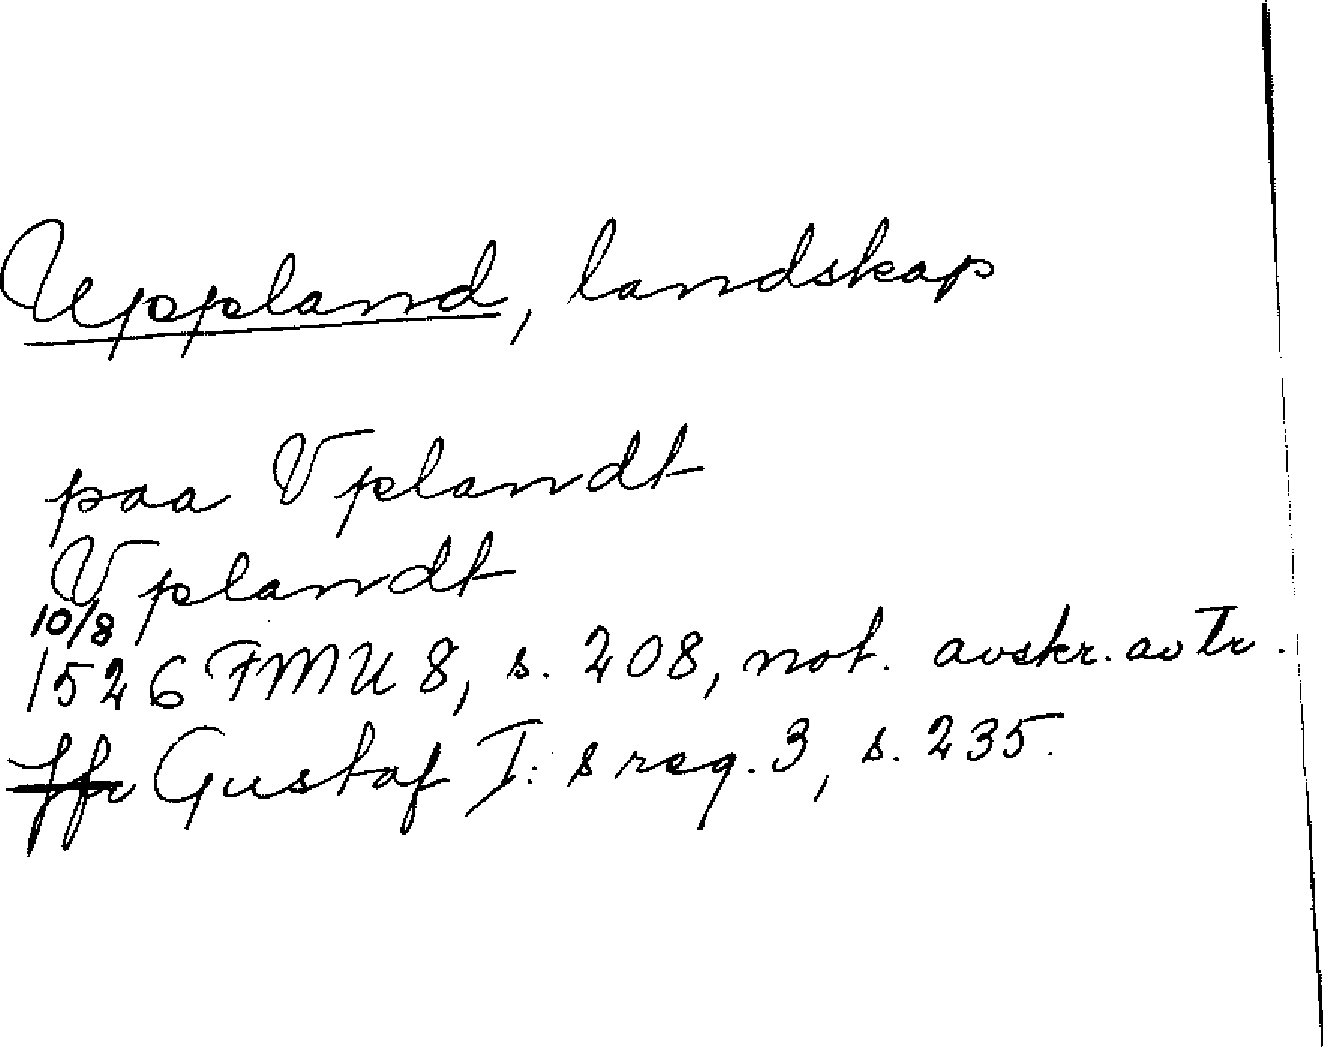 Uppland, landskap
paa Vplandt
Vplandt
10/8
1526 FMU 8, s. 208, not. avskr. av tr.
Jfr Gustaf I:s reg. 3, s. 235.